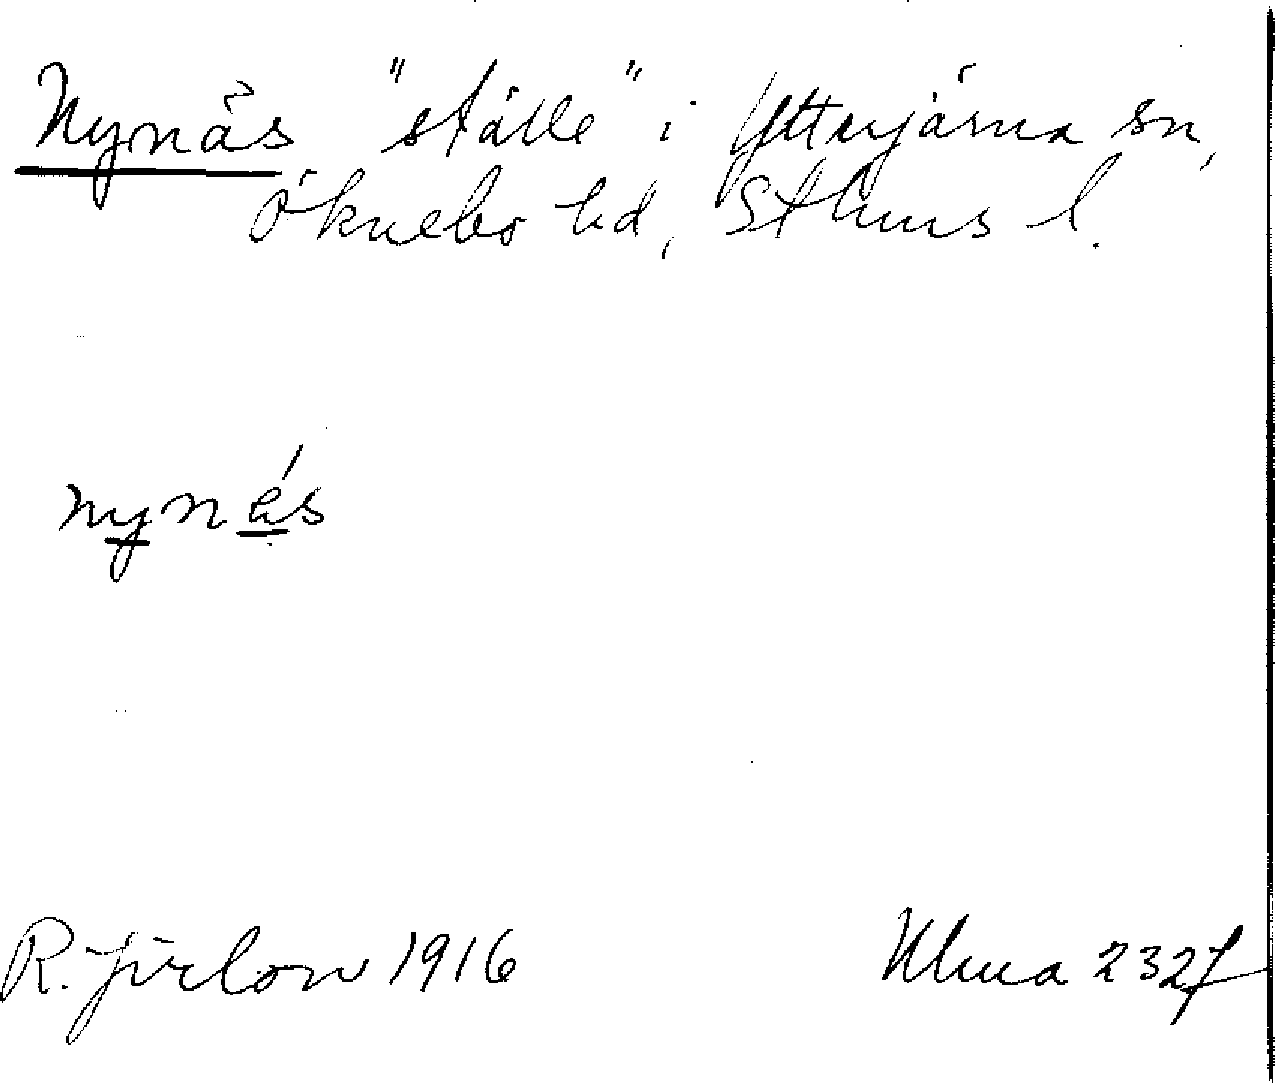 Nynäs "ställe" i Ytterjärna sn,
Öknebo hd, Sthms l.
nynäs
R. Jirlow 1916
Ulma 2327